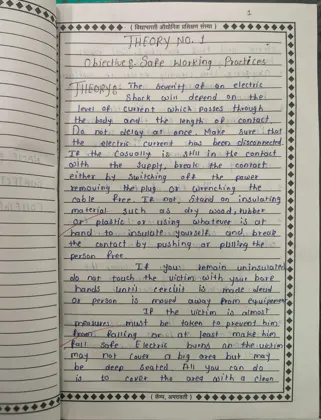 1
( विद्याभारती औद्योगिक प्रशिक्षण संस्था )
THEORY NO. 1
Objective: Safe Working Practices
THEORY: The severity of an electric
Shock will depend on the
level of current which passes through
the body and the length of contact.
Do not delay at once. Make sure that
the electric current has been disconnected.
If the Casually is still in the contact
with the supply, break the contact
either by switching off the power
removing the plug or wrenching the
cable free. If not, Stand on insulating
material such as dry wood, rubber
or plastic or using whatever is at
hand to insulate yourself and break
the contact by pushing or pulling the
person free.
If you remain uninsulated
do not touch the victim with your bare
hands until circuit is made dead
or person is moved away from equipment
If the victim is almost
measures must be taken to prevent him
from falling or at least make him
fall safe. Electric burns on the victim
may not cover a big area but may
be deep seated. All you can do
is to cover the area with a clean